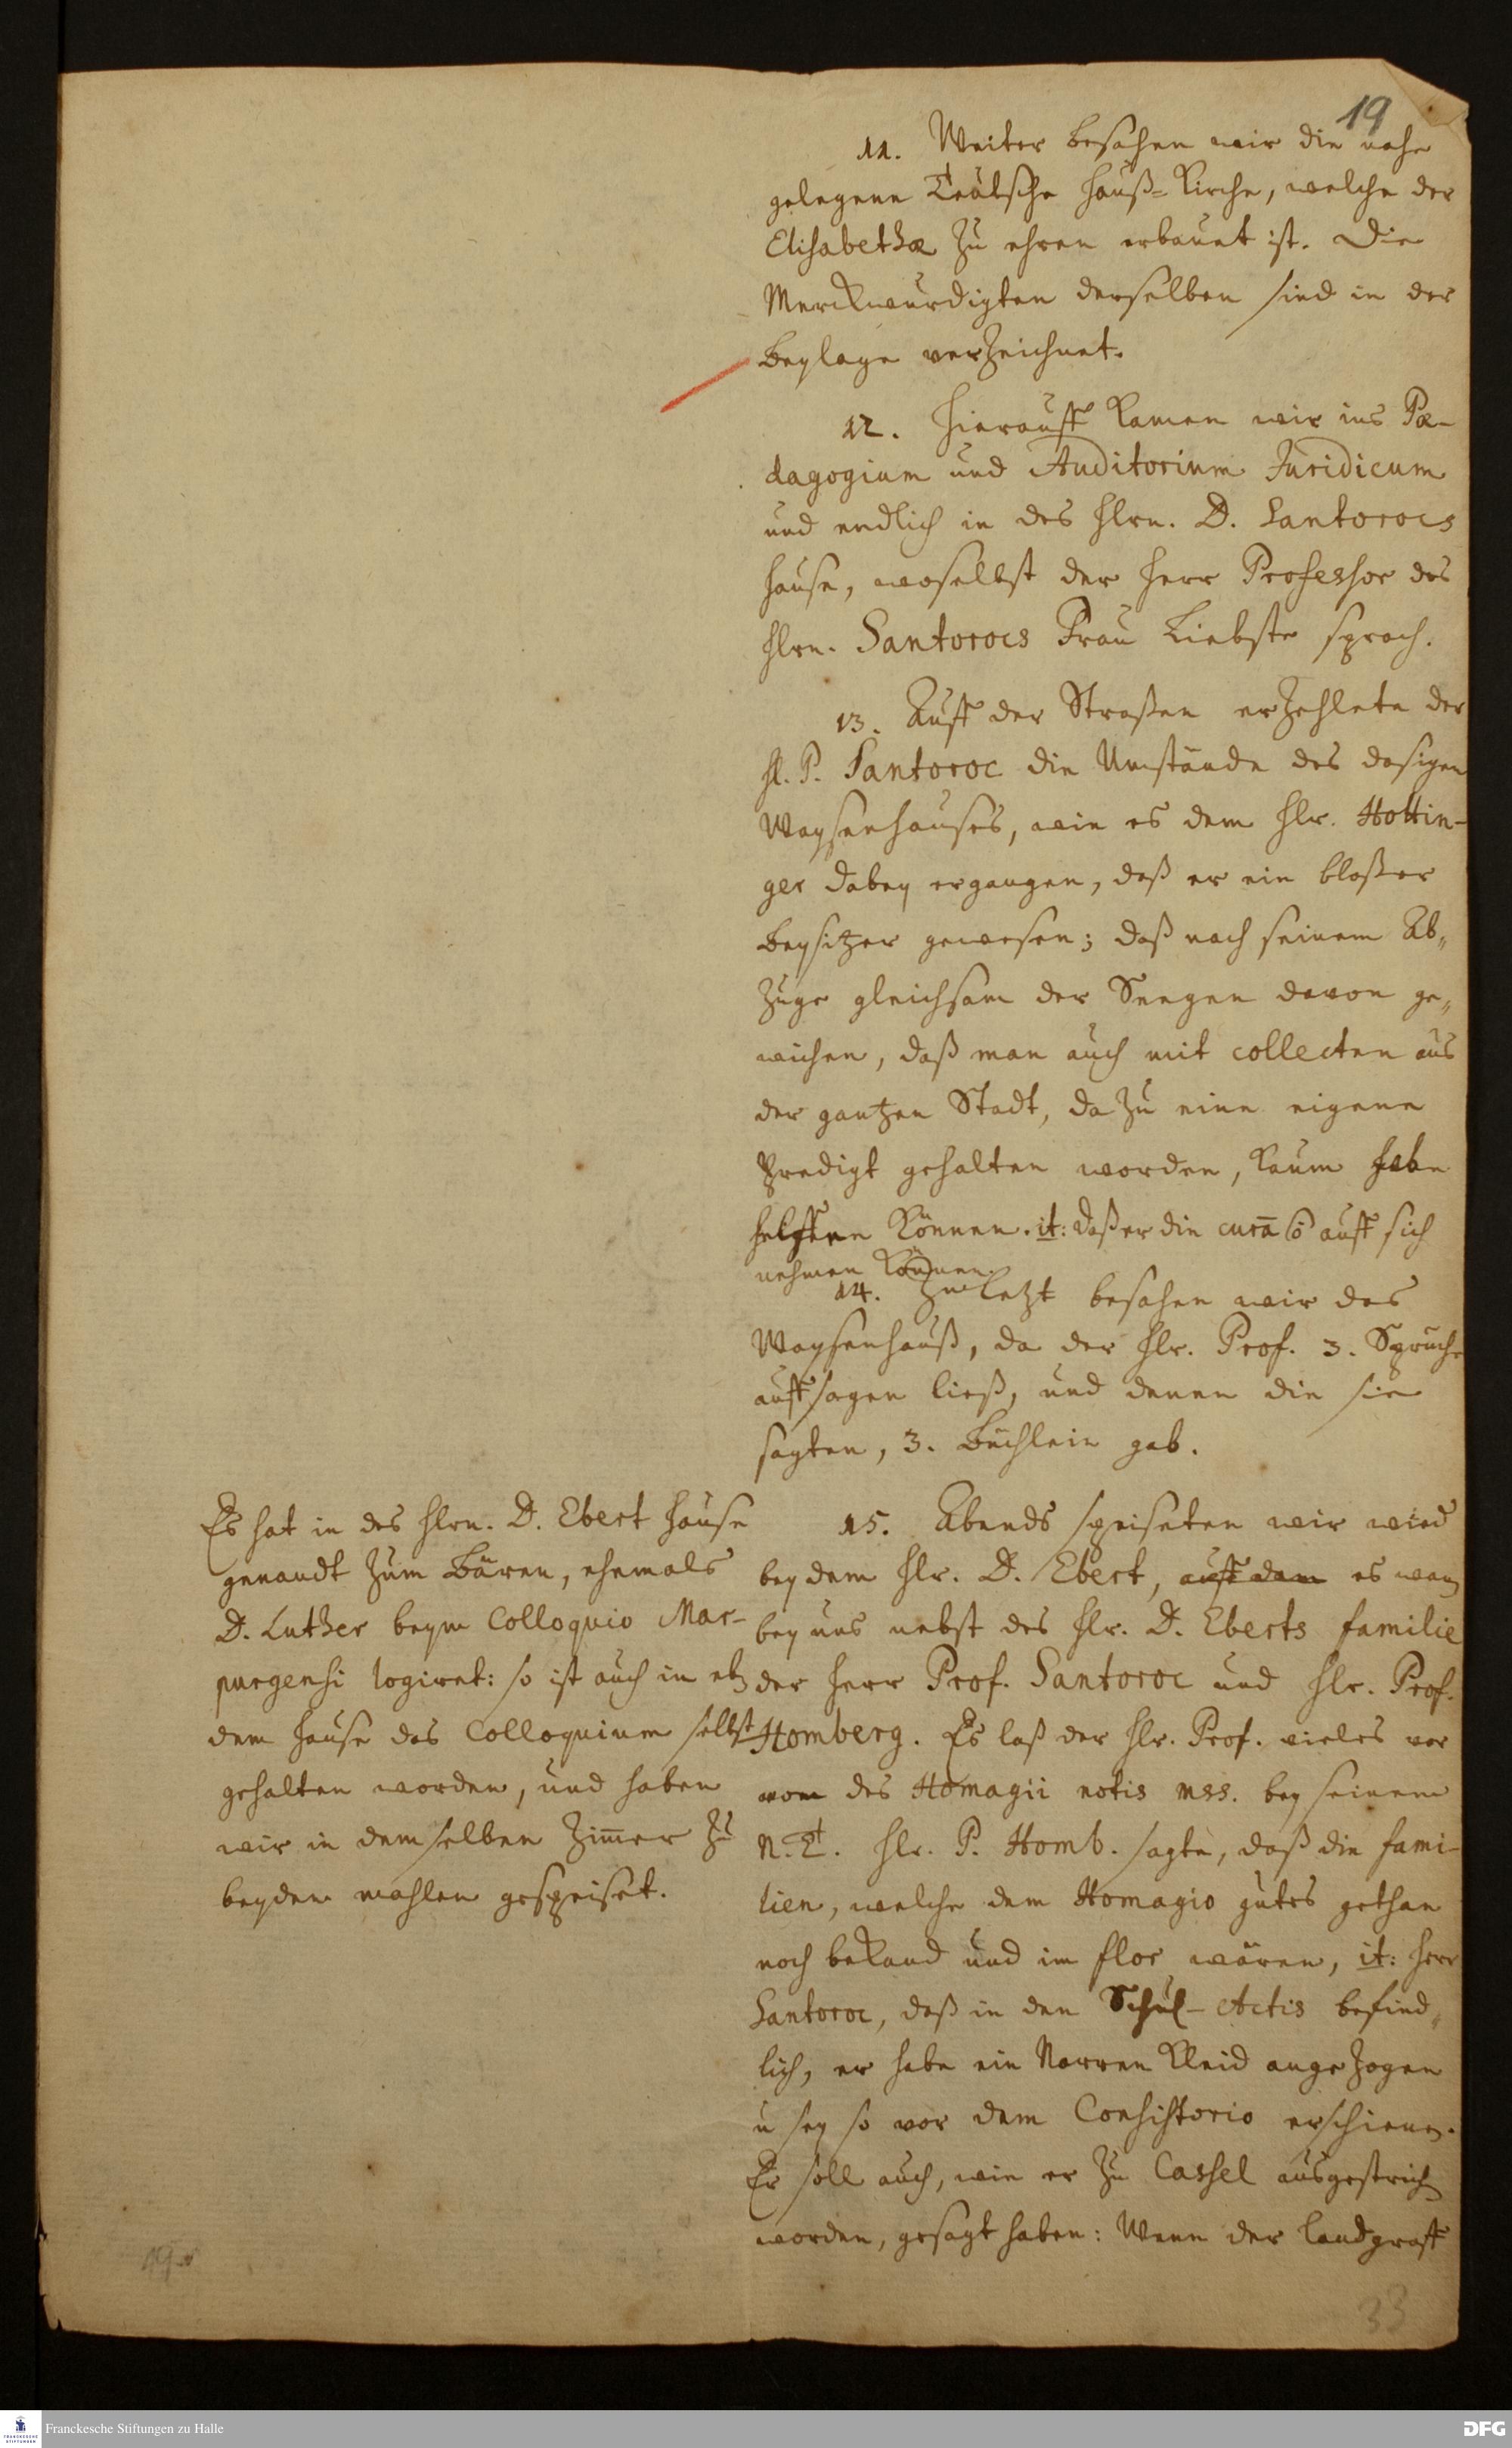 19
11. Weiter besahen wir die nahe
gelegene Teutsche Hauß-Kirche, welche der
Elisabethæ zu ehren erbauet ist. Die
Merckwürdigkten derselben sind in der
Beylage verzeichnet.
12. Hierauff kamen wir ins Pæ-
dagogium und Auditorium Juridicum
und endlich in des Hlrn. D. Santorocs
Hause, woselbst der Herr Professor des
Hlrn. Santorocs Frau Liebste sprach.
13. Auff der Straßen erzehlete der
Hl. P. Santoroc die Umstände des dasigen
Waysenhauses, wie es dem Hlr. Hottin-
ger dabey ergangen, daß er ein bloßer
Beysitzer gewesen; daß nach seinem Ab-
zuge gleichsam der Seegen davon ge-
wichen, daß man auch mit collecten aus
der gantzen Stadt, dazu eine eigene
Predigt gehalten worden, kaum habe
helffen können. it: daß er die curā auff sich
nehmen können.
14. Zuletzt besahen wir das
Waysenhauß, da der Hlr. Prof. 3. Sprüche
auffsagen ließ, und denen die sie
sagten, 3. Büchlein gab.
15. Abends speiseten wir wied
bey dem Hlr. D. Ebert, auff dem es waren
bey uns nebst des Hlr. D. Eberts familie
der Herr Prof. Santoroc und Hlr. Prof.
Homberg. Es laß der Hlr. Prof. vieles vor
von des Homagii notis mss. bey seinem
N. T. Hlr. P. Homb. sagte, daß die fami-
lien, welche dem Homagio gutes gethan
noch bekand und im flor wären, it: Herr
Santoroc, daß in den Schul-Actis befind-
lich, er habe ein Narren Kleid angezogen
u sey so vor dem Consistorio erschienen.
Er soll auch, wie er zu Cassel ausgestrichen
worden, gesagt haben: Wenn der Landgraff
Es hat in des Hlrn. D. Ebert Hause
genandt zum Bären, ehemals
D. Luther beym Colloquio Mar-
purgensi logiret: so ist auch in eben
dem Hause das Colloquium selbst
gehalten worden, und haben
wir in demselben Zimmer zu
beyden mahlen gespeiset.
33
Franckesche Stiftungen zu Halle
DFG